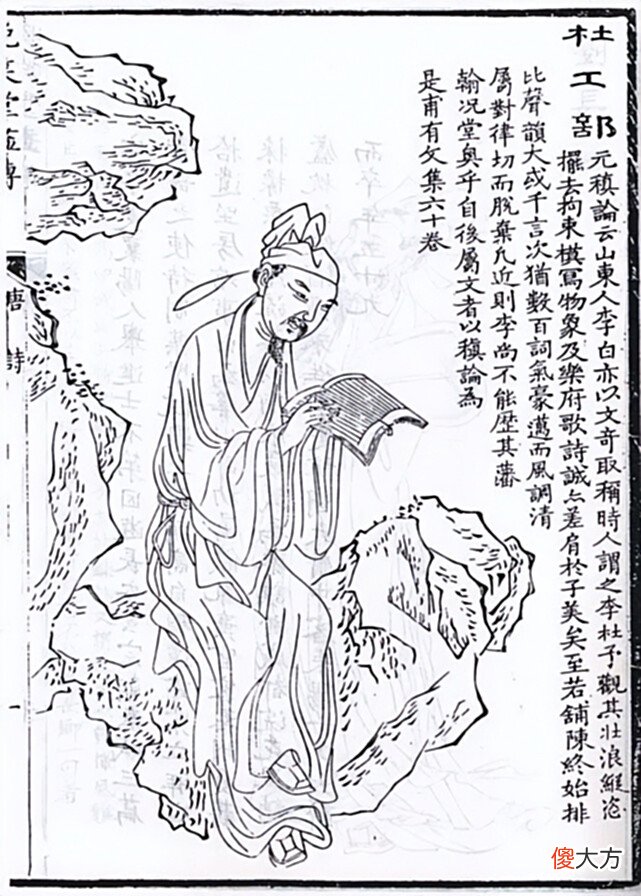 杜工部
元稹論云山東人李白亦以文奇取稱時人謂之李杜予觀其壯浪縱恣
擺去拘束模寫物象及樂府歌詩誠亦差肩於子美矣至若舖陳終始排
比聲韻大或千言次猶數百詞氣豪邁而風調清
屬對律切而脫棄凡近則李尚不能歷其藩
翰況堂奧乎自後屬文者以稹論為
是甫有文集六十卷
唐詩
一
傻大方